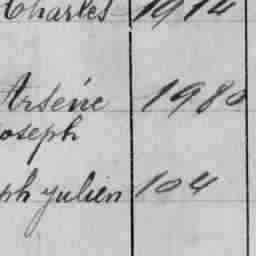 Charles 1914
Arséne 1980
Joseph
ph Julien 104